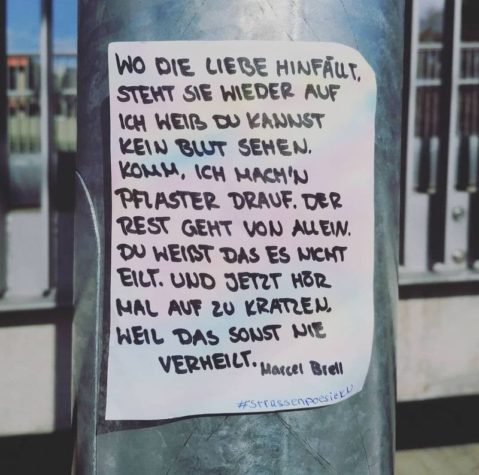 WO DIE LIEBE HINFÄLLT,
STEHT SIE WIEDER AUF
ICH WEIß DU KANNST
KEIN BLUT SEHEN.
KOMM, ICH MACH'N
PFLASTER DRAUF. DER
REST GEHT VON ALLEIN.
DU WEIßT DAS ES NICHT
EILT. UND JETZT HÖR
MAL AUF ZU KRATZEN,
WEIL DAS SONST NIE
VERHEILT. Marcel Brell